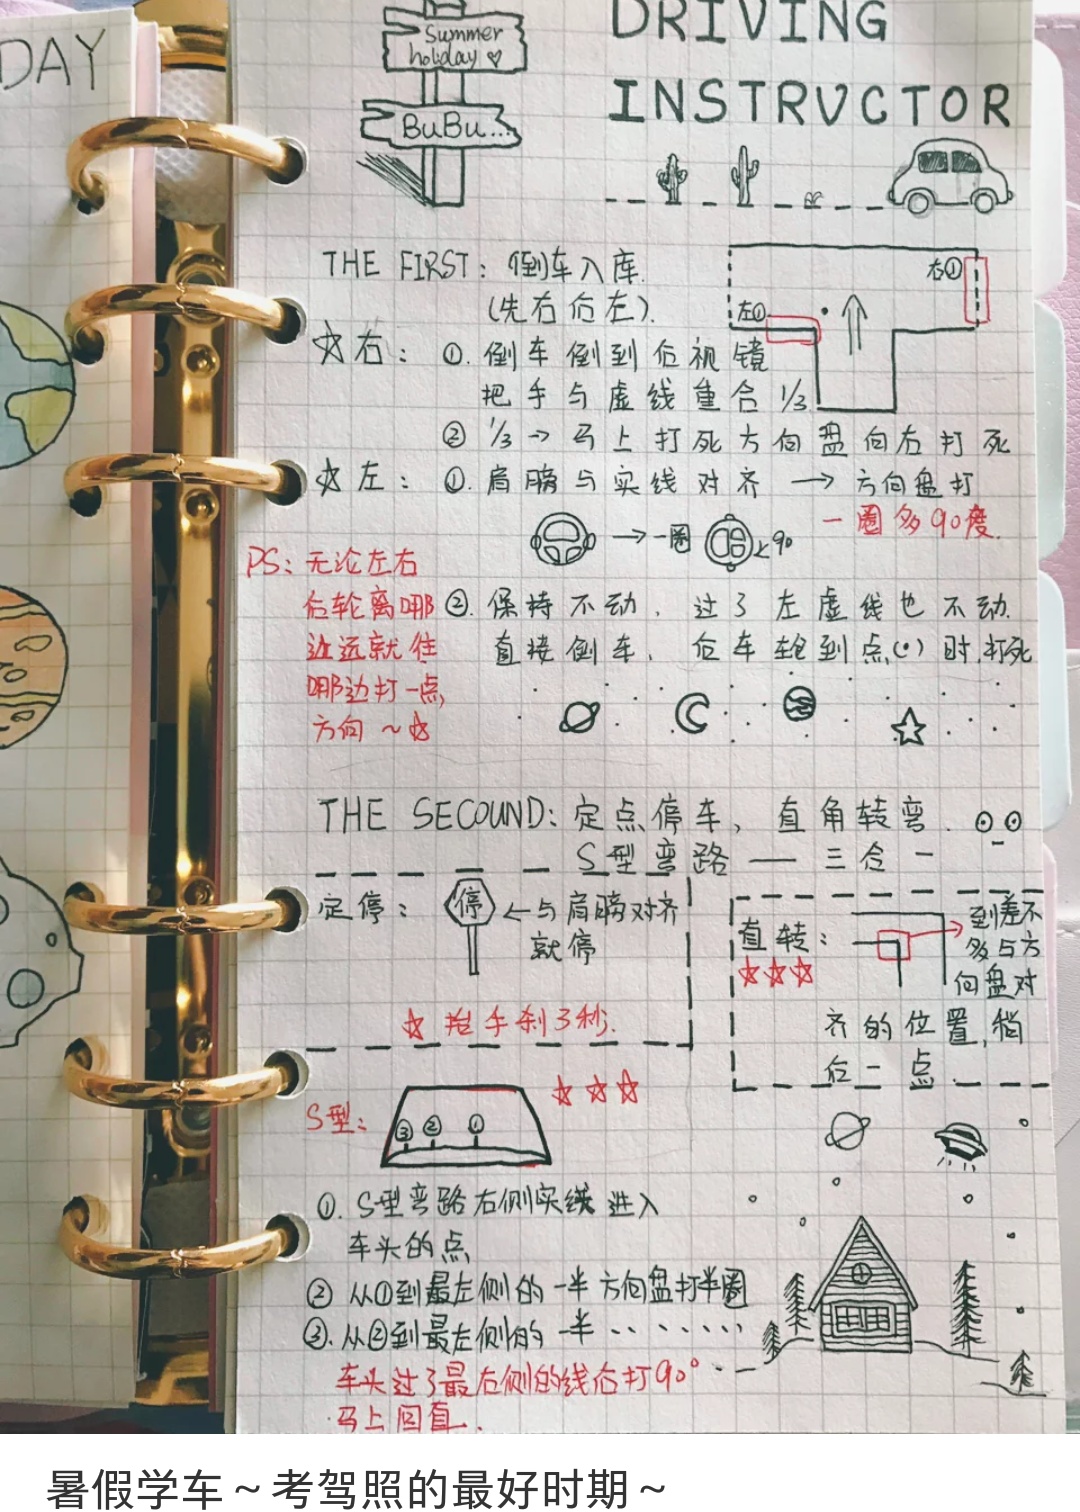 DAY
Summer
holiday ♡
BuBu...
DRIVING
INSTRUCTOR
THE FIRST: 倒车入库.
(先右后左).
右①
左①
☆右: ①. 倒车倒到后视镜
把手与虚线重合 1/3.
② 1/3 → 马上打死方向盘向右打死
☆左: ①. 肩膀与实线对齐 → 方向盘打
一圈多90度.
→一圈
90
PS: 无论左右
后轮离哪
边远就往
哪边打一点,
方向 ~☆
②. 保持不动, 过了左虚线也不动.
直接倒车, 后车轮到点(·)时,打死
THE SECOUND: 定点停车, 直角转弯.
S型弯路 — 三合一
定停:
停
←与肩膀对齐
就停
☆ 拉手刹3秒.
直转:
☆☆☆
到差不
多与方
向盘对
齐的位置,稍
后一点.
S型:
☆☆☆
③ ② ①
①. S型弯路右侧实线进入
车头的点
② 从①到最左侧的一半方向盘打半圈
③. 从②到最左侧的一半 . . . . . . .
车头过了最右侧的线右打90°
马上回直.
暑假学车～考驾照的最好时期～